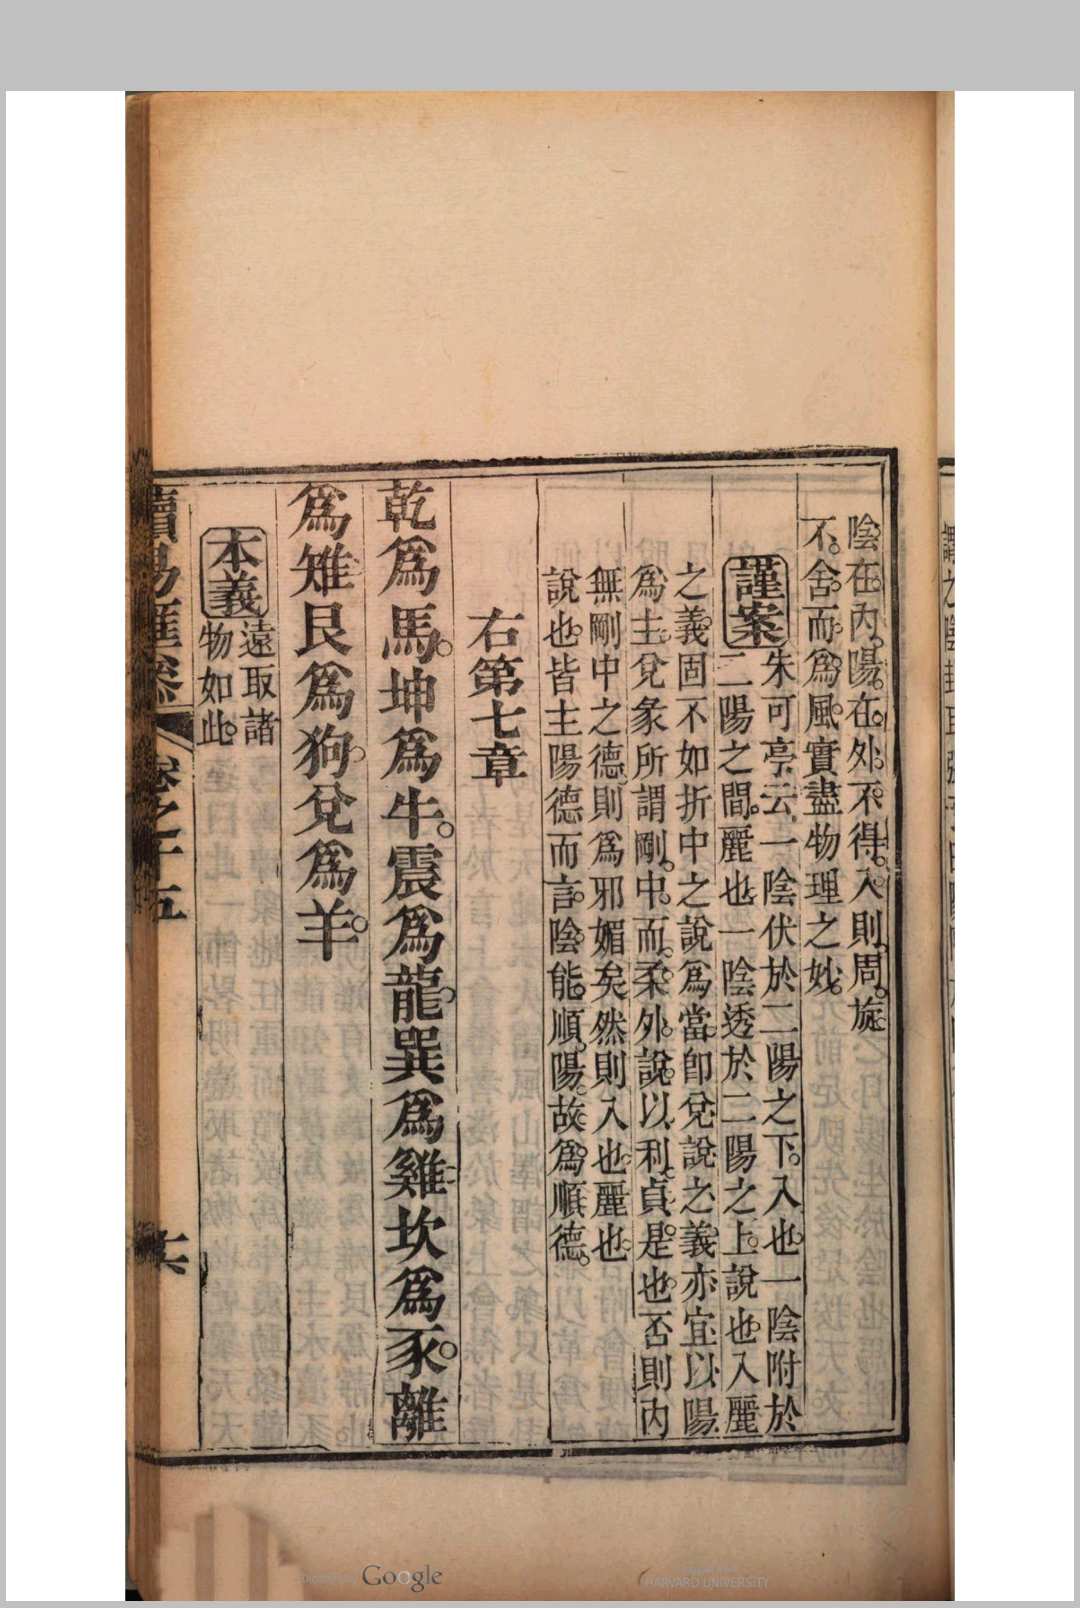 陰在內。陽在外。不得入則周旋
不舍而爲風。實盡物理之妙。
謹案
朱可亭云。一陰伏於二陽之下。入也。一陰附於
二陽之間。麗也。一陰透於二陽之上。說也。入麗
之義。固不如折中之說爲當。卽兌說之義。亦宜以陽
爲主。兌彖所謂剛中而柔外。說以利貞是也。否則內
無剛中之德。則爲邪媚矣。然則入也。麗也。
說也。皆主陽德而言。陰能順陽。故爲順德。
右第七章
乾爲馬。坤爲牛。震爲龍。巽爲雞。坎爲豕。離
爲雉。艮爲狗。兌爲羊。
本義
遠取諸
物如此。
讀易匯參
卷之十五
六
Google
HARVARD UNIVERSITY